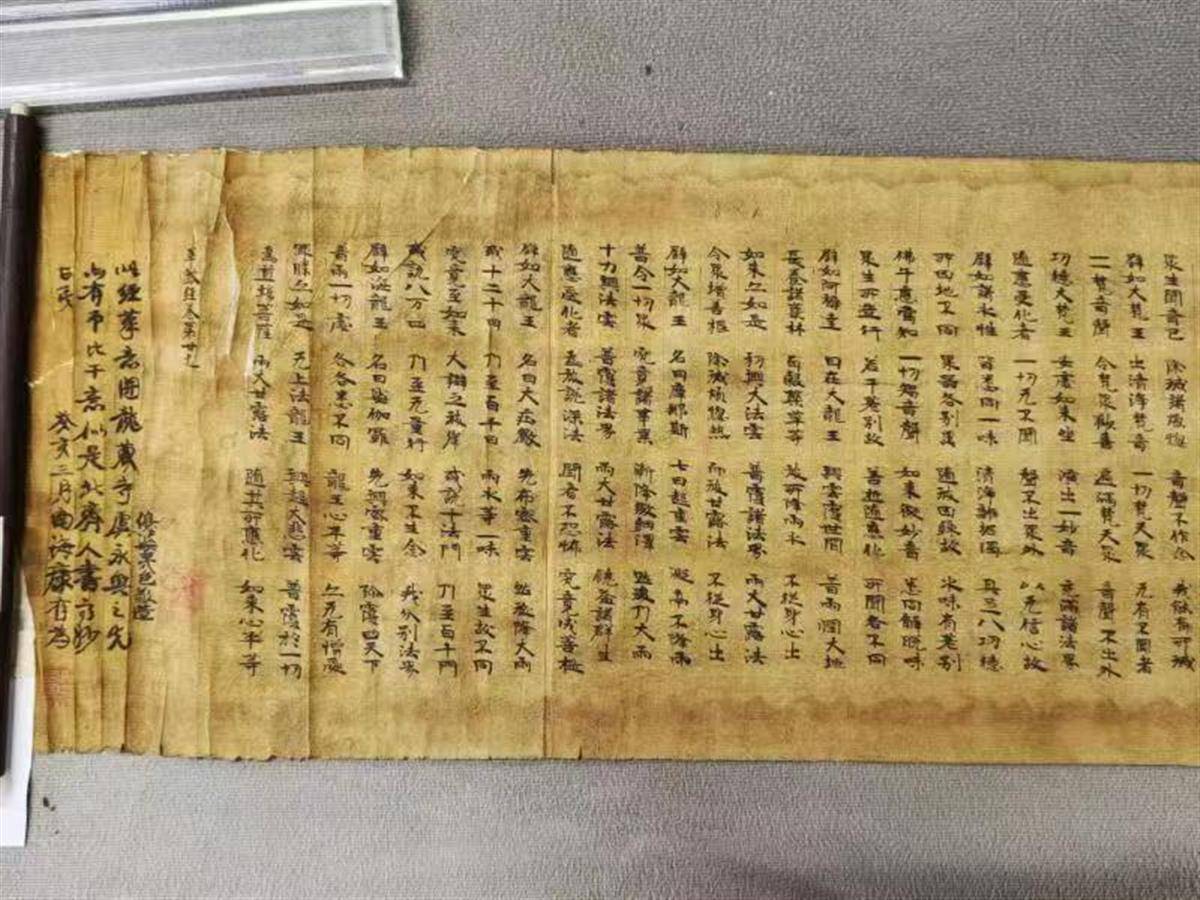 眾生聞音已 除滅諸煩惱 音聲不作念 我能有所滅
辟如大梵王 出清淨梵音 一切梵天眾 无有不聞者
一梵音聲 令梵眾歡喜 遍滿梵天眾 音聲不出外
功德大梵王 安處如來坐 演出一妙音 充滿諸法界
隨應受化者 一切无不聞 聲不出眾外 以无信心故
辟如諸水性 皆悉同一味 清淨離垢濁 具足八功德
所因地不同 眾器各別異 隨彼因緣故 水味有差別
佛乎應當知 一切 音聲 如來微妙音 悉同解脫味
眾生所造行 若干差別故 善逝隨應化 所聞各不同
辟如阿耨達 曰在大龍王 興雲 世間 普雨潤大地
長養諸叢林 百穀藥草等 彼所降雨水 不從身心出
如來亦如是 初興大法雲 普覆諸法界 雨大甘露法
令眾增善根 除滅煩惱然 而彼甘露法 不從身心出
辟如大龍王 名曰摩那斯 七日起重雲 凝停不降雨
普令一切眾 究竟諸事業 漸降微細澤 然後乃大雨
十力興法雲 普覆諸法界 雨大甘露法 饒益諸群生
隨應受化者 說深法 聞者不恐怖 究竟成善根
辟如大龍王 名曰大莊嚴 先布密重雲 然後降大雨
或十二十四 乃至百千日 雨水等一味 眾生故不同
究竟至如來 大辯之彼岸 或說十法門 乃至百千門
或說八万四 乃至无量行 如來不生念 我分別法界
辟如 龍王 名曰 伽羅 先興密重雲 弥覆四天下
普雨一切處 各各悉不同 龍王心平等 亦无有憎愛
眾勝亦如是 无上法龍王 興起大悲雲 普覆於一切
為 菩薩 雨大甘露法 隨其所應化 如來心平等
華嚴經卷第廿九
此經筆意 龍藏寺虞永興之先
河有 比干意似是北齊人書 妙
癸亥三月 南海康有為